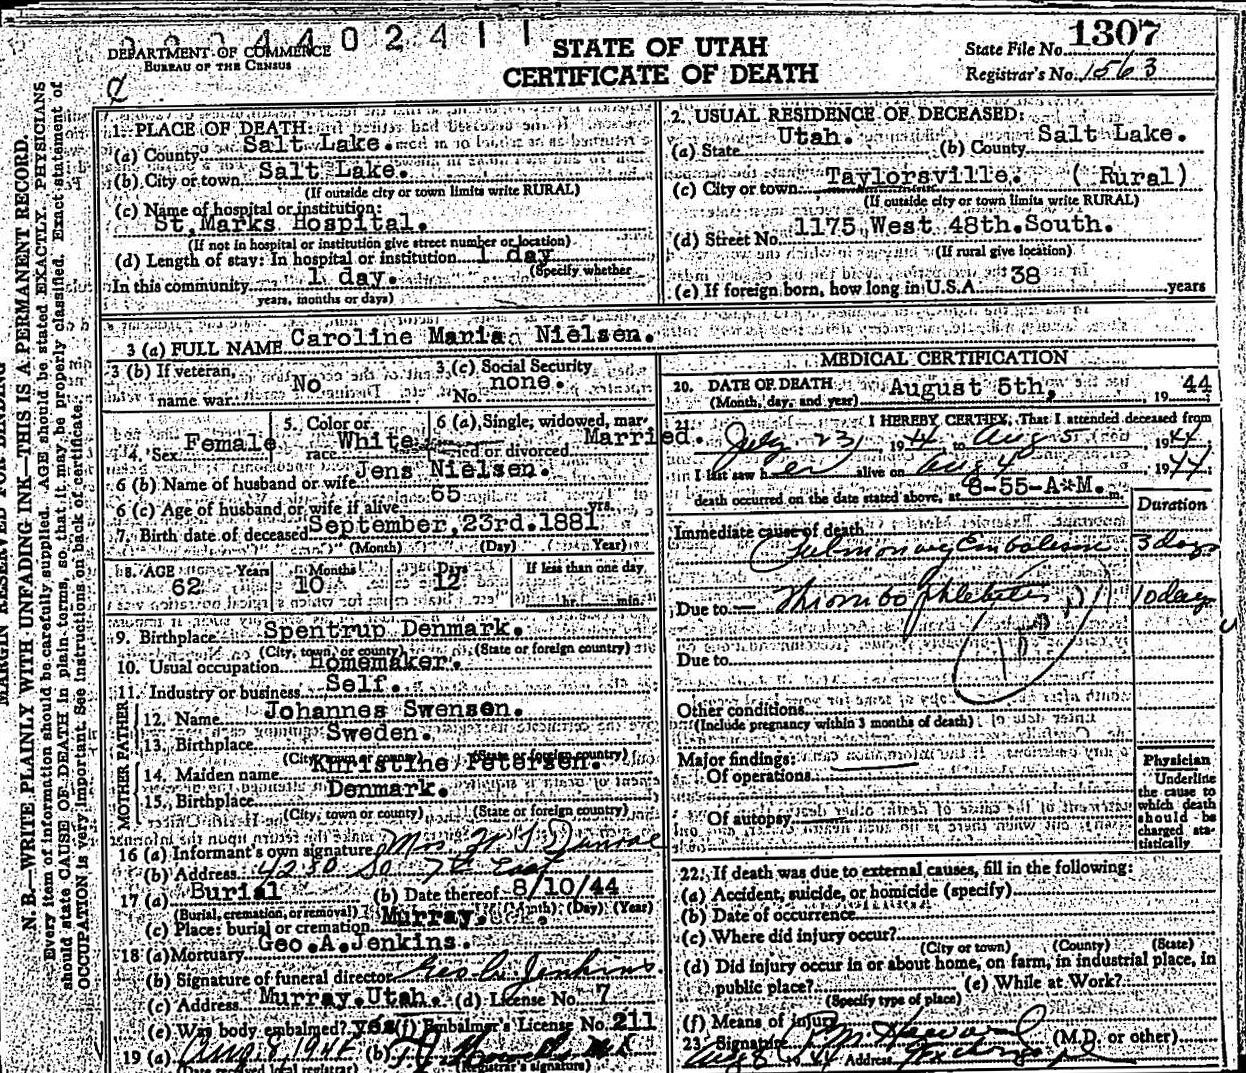 DEPARTMENT OF COMMERCE
BUREAU OF THE CENSUS
STATE OF UTAH
CERTIFICATE OF DEATH
State File No. 1307
Registrar's No. 1563
MARGIN RESERVED FOR BINDING
N. B.—WRITE PLAINLY WITH UNFADING INK—THIS IS A PERMANENT RECORD.
Every item of information should be carefully supplied. AGE should be stated EXACTLY. PHYSICIANS
should state CAUSE OF DEATH in plain terms, so that it may be properly classified. Exact statement of
OCCUPATION is very important. See instructions on back of certificate.
1. PLACE OF DEATH:
(a) County Salt Lake.
(b) City or town Salt Lake.
(If outside city or town limits write RURAL)
(c) Name of hospital or institution:
St. Marks Hospital.
(If not in hospital or institution give street number or location)
(d) Length of stay: In hospital or institution 1 day
(Specify whether
In this community 1 day.
years, months or days)
2. USUAL RESIDENCE OF DECEASED:
(a) State Utah. (b) County Salt Lake.
(c) City or town Taylorsville. (Rural)
(If outside city or town limits write RURAL)
(d) Street No. 1175 West 48th.South.
(If rural give location)
(e) If foreign born, how long in U.S.A. 38 years
3 (a) FULL NAME Caroline Maria Nielsen.
3 (b) If veteran,
name war No
3 (c) Social Security
No. none.
4. Sex Female
5. Color or
race White
6 (a) Single, widowed, mar-
ried or divorced Married.
6 (b) Name of husband or wife Jens Nielsen.
6 (c) Age of husband or wife if alive 65 yrs.
7. Birth date of deceased September 23rd.1881
(Month) (Day) (Year)
8. AGE Years Months Days If less than one day
62 10 12 hr. min.
9. Birthplace Spentrup Denmark.
(City, town, or county) (State or foreign country)
10. Usual occupation Homemaker.
11. Industry or business Self.
FATHER
12. Name Johannes Swensen.
13. Birthplace Sweden.
(City, town or county) (State or foreign country)
MOTHER
14. Maiden name Khristine Petersen.
15. Birthplace Denmark.
(City, town or county) (State or foreign country)
16 (a) Informant's own signature Mrs
(b) Address 4230 So 7th East
17 (a) Burial (b) Date thereof 8/10/44
(Burial, cremation, or removal) (Month) (Day) (Year)
(c) Place: burial or cremation Murray.
18 (a) Mortuary Geo.A.Jenkins.
(b) Signature of funeral director Geo A Jenkins.
(c) Address Murray.Utah. (d) License No. 7
(e) Was body embalmed? yes (f) Embalmer's License No. 211
19 (a) Aug 8 1944 (b)
(Date received local registrar) (Registrar's signature)
MEDICAL CERTIFICATION
20. DATE OF DEATH August 5th, 1944
(Month, day, and year)
21. I HEREBY CERTIFY, That I attended deceased from
July 23, 1944 to Aug 5, 1944;
I last saw her alive on Aug 4 1944;
death occurred on the date stated above, at 8-55-A*M. m.
Duration
Immediate cause of death
Pulmonary Embolism 3 days
Due to Thrombo phlebitis 10 days
Due to
Other conditions
(Include pregnancy within 3 months of death)
Major findings:
Of operations
Of autopsy
Physician
Underline
the cause to
which death
should be
charged sta-
tistically.
22. If death was due to external causes, fill in the following:
(a) Accident, suicide, or homicide (specify)
(b) Date of occurrence
(c) Where did injury occur?
(City or town) (County) (State)
(d) Did injury occur in or about home, on farm, in industrial place, in
public place? (e) While at Work?
(Specify type of place)
(f) Means of injury
23. Signature (M.D. or other)
Aug 8 1944 Address